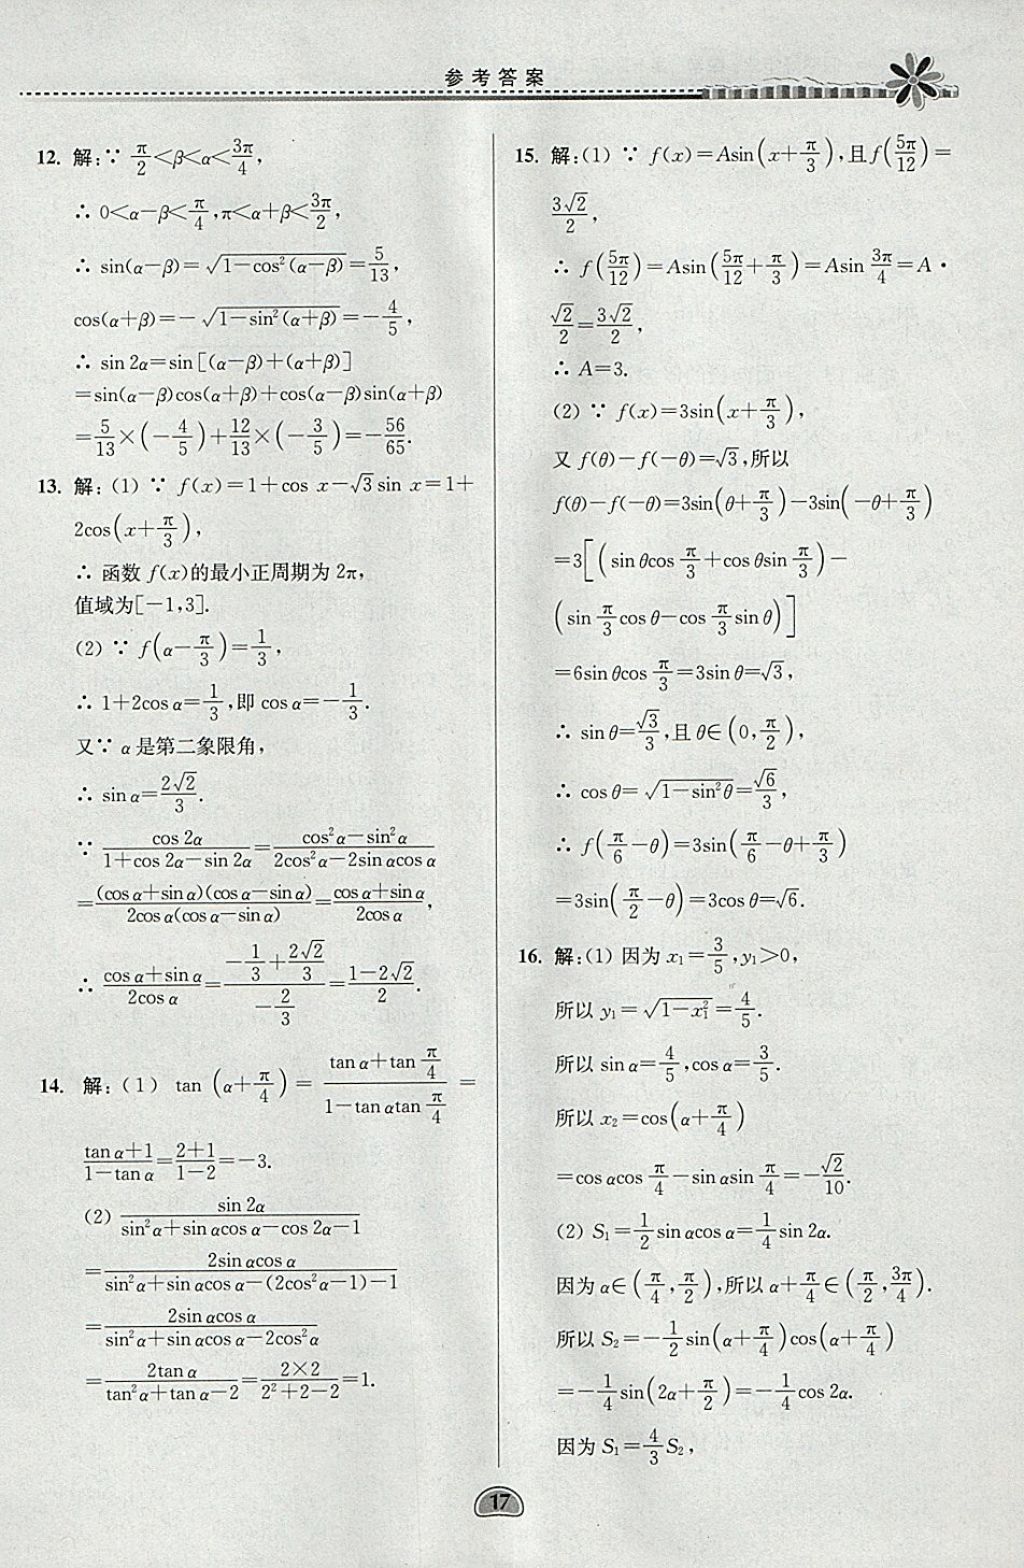 参考答案
12. 解:∵ π/2<β<α<3π/4,
∴ 0<α-β<π/4,π<α+β<3π/2,
∴ sin(α-β)=√(1-cos²(α-β))=5/13,
cos(α+β)=-√(1-sin²(α+β))=-4/5,
∴ sin 2α=sin[(α-β)+(α+β)]
=sin(α-β)cos(α+β)+cos(α-β)sin(α+β)
=5/13×(-4/5)+12/13×(-3/5)=-56/65.
13. 解:(1) ∵ f(x)=1+cos x-√3 sin x=1+
2cos(x+π/3),
∴ 函数 f(x)的最小正周期为 2π,
值域为[-1,3].
(2) ∵ f(α-π/3)=1/3,
∴ 1+2cos α=1/3,即 cos α=-1/3.
又∵ α 是第二象限角,
∴ sin α=2√2/3.
∵ cos 2α/(1+cos 2α-sin 2α)=(cos²α-sin²α)/(2cos²α-2sin αcos α)
=(cos α+sin α)(cos α-sin α)/(2cos α(cos α-sin α))=(cos α+sin α)/(2cos α),
∴ (cos α+sin α)/(2cos α)=(-1/3+2√2/3)/(-2/3)=(1-2√2)/2.
14. 解:(1) tan(α+π/4)=(tan α+tan π/4)/(1-tan αtan π/4)=
(tan α+1)/(1-tan α)=(2+1)/(1-2)=-3.
(2) sin 2α/(sin²α+sin αcos α-cos 2α-1)
=2sin αcos α/(sin²α+sin αcos α-(2cos²α-1)-1)
=2sin αcos α/(sin²α+sin αcos α-2cos²α)
=2tan α/(tan²α+tan α-2)=(2×2)/(2²+2-2)=1.
15. 解:(1) ∵ f(x)=Asin(x+π/3),且f(5π/12)=
3√2/2,
∴ f(5π/12)=Asin(5π/12+π/3)=Asin 3π/4=A·
√2/2=3√2/2,
∴ A=3.
(2) ∵ f(x)=3sin(x+π/3),
又 f(θ)-f(-θ)=√3,所以
f(θ)-f(-θ)=3sin(θ+π/3)-3sin(-θ+π/3)
=3[(sin θcos π/3+cos θsin π/3)-
(sin π/3 cos θ-cos π/3 sin θ)]
=6sin θcos π/3=3sin θ=√3,
∴ sin θ=√3/3,且 θ∈(0,π/2),
∴ cos θ=√(1-sin²θ)=√6/3,
∴ f(π/6-θ)=3sin(π/6-θ+π/3)
=3sin(π/2-θ)=3cos θ=√6.
16. 解:(1) 因为 x₁=3/5,y₁>0,
所以 y₁=√(1-x₁²)=4/5.
所以 sin α=4/5,cos α=3/5.
所以 x₂=cos(α+π/4)
=cos αcos π/4-sin αsin π/4=-√2/10.
(2) S₁=1/2 sin αcos α=1/4 sin 2α.
因为 α∈(π/4,π/2),所以 α+π/4∈(π/2,3π/4).
所以 S₂=-1/2 sin(α+π/4)cos(α+π/4)
=-1/4 sin(2α+π/2)=-1/4 cos 2α.
因为 S₁=4/3 S₂,
17